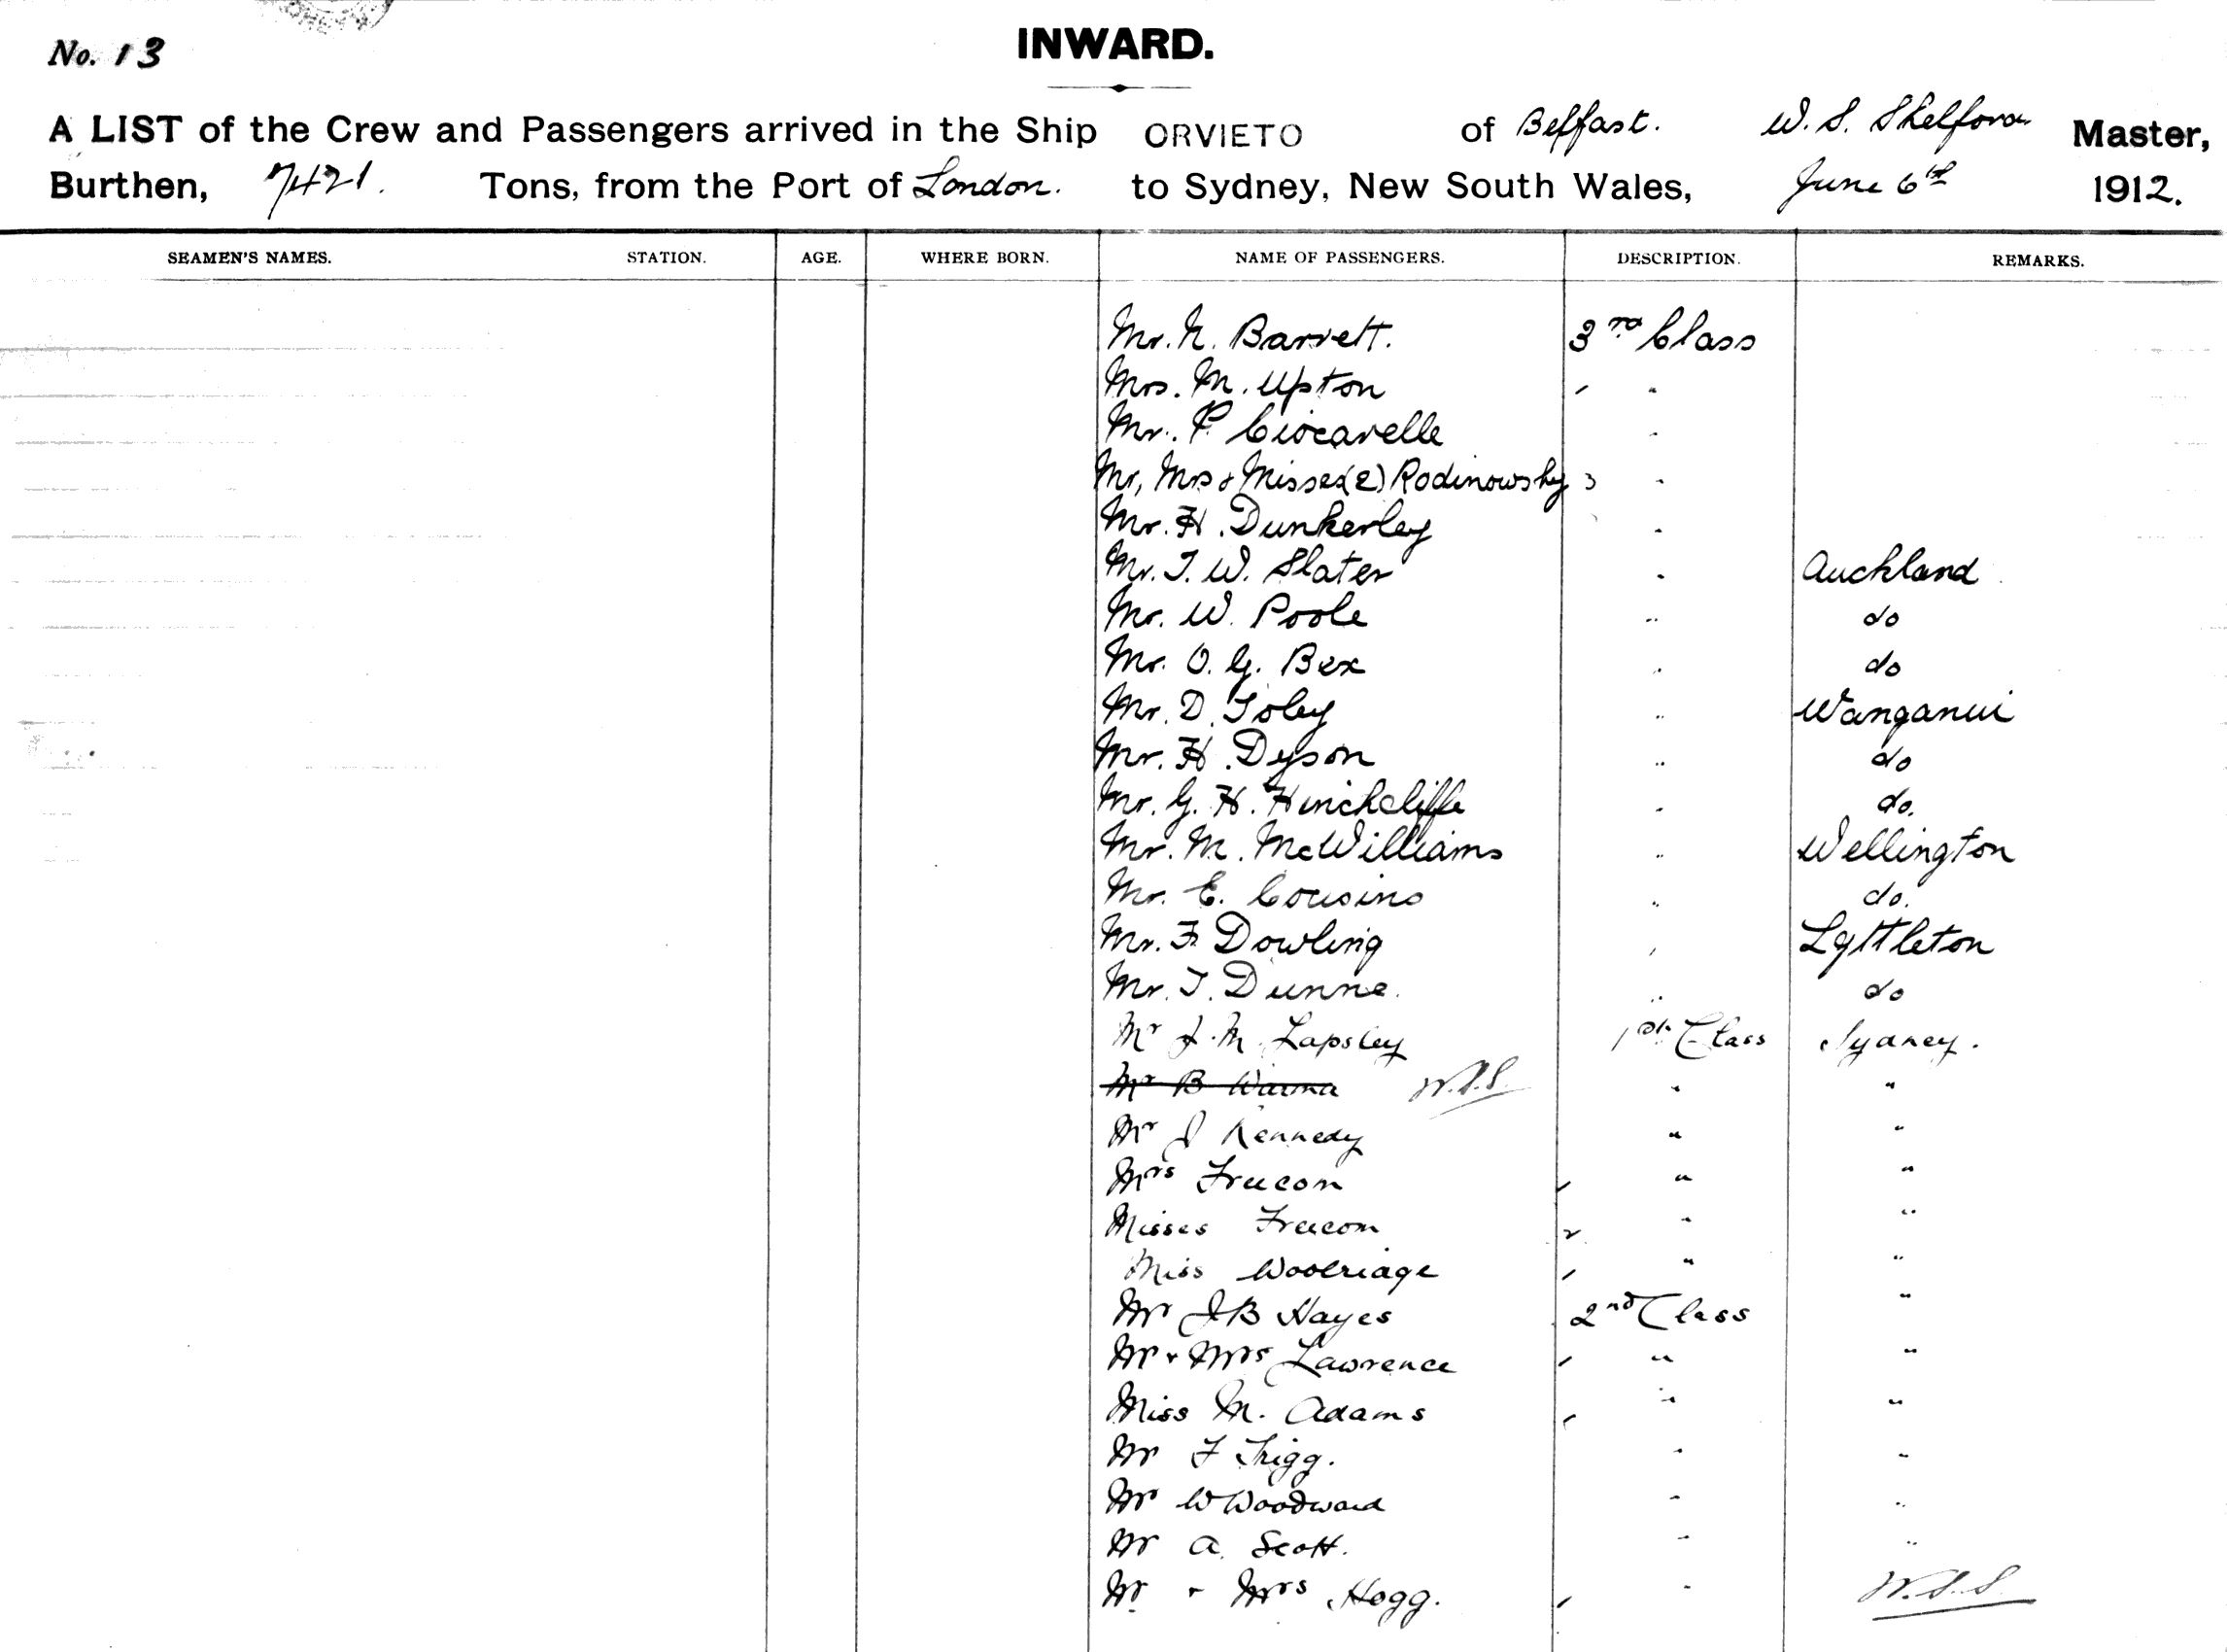 No. 13
INWARD.
A LIST of the Crew and Passengers arrived in the Ship ORVIETO of Belfast. W. S. Shelford Master,
Burthen, 7421. Tons, from the Port of London. to Sydney, New South Wales, June 6th 1912.
SEAMEN'S NAMES. STATION. AGE. WHERE BORN. NAME OF PASSENGERS. DESCRIPTION. REMARKS.
Mr. N. Barrett. 3rd Class
Mrs. M. Upton " "
Mr. P. Ciocarelle "
Mr, Mrs & Misses (2) Rodinowsky 3 "
Mr. H. Dunkerley "
Mr. T. W. Slater " Auckland
Mr. W. Poole " do
Mr. O. G. Bex " do
Mr. D. Foley " Wanganui
Mr. H. Dyson " do
Mr. G. H. Hinchcliffe " do.
Mr. M. McWilliams " Wellington
Mr. E. Cousins " do.
Mr. F. Dowling " Lyttleton
Mr. T. Dunne. " do
Mr J. M. Lapsley 1st Class Sydney.
Mr B Warma W.S.S. " "
Mr J Kennedy " "
Mrs Freecom " "
Misses Freecom 2 " "
Miss Woolridge " "
Mr J B Hayes 2nd Class "
Mr & Mrs Lawrence " "
Miss M. Adams " "
Mr F Trigg. " "
Mr W Woodward " "
Mr A. Scott. " "
Mr & Mrs Hogg. " W.S.S.